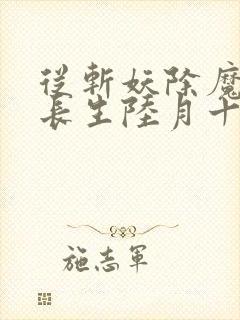 從斬妖除魔
長生陸月十
施志軍